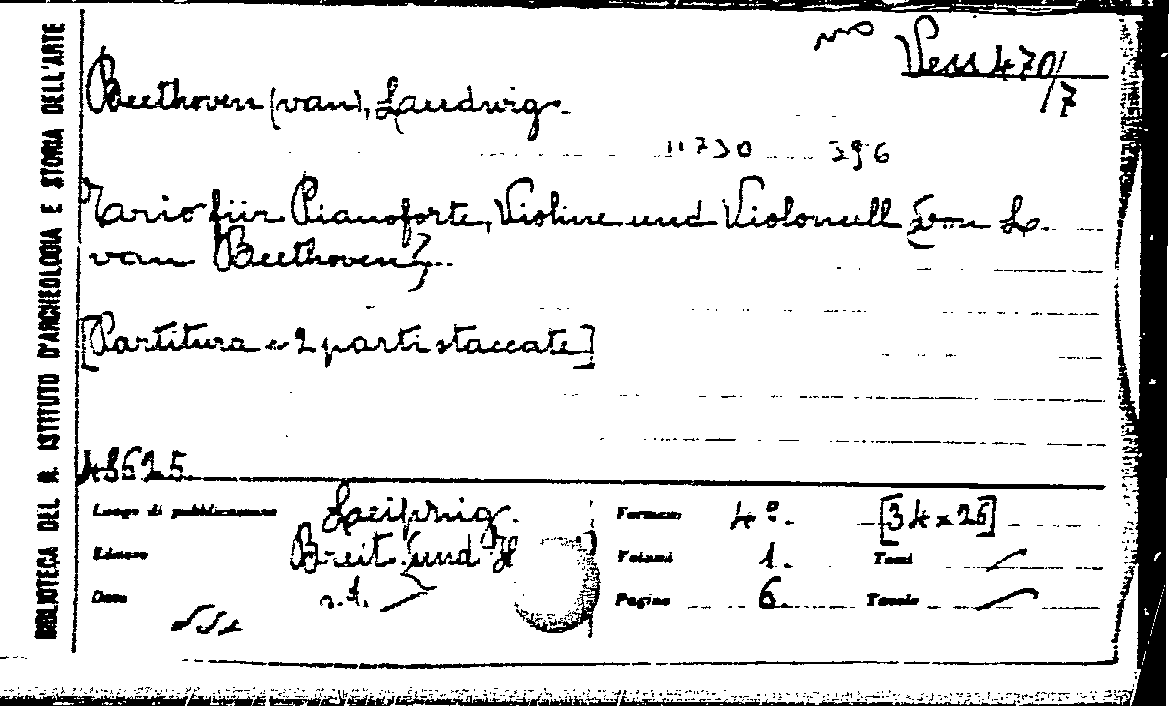 BIBLIOTECA DEL R. ISTITUTO D'ARCHEOLOGIA E STORIA DELL'ARTE
Vess 470/7
Beethoven (van), Laudwig.
11730 396
für Pianoforte, Violine und Violoncell von L.
van Beethoven
[Partitura e 2 parti staccate]
48625
Luogo di pubblicazione Leipzig. Formato 4º. [34 x 26]
Editore Breit. und H Volumi 1. Tomi
Data s.d. Pagine 6. Tavole